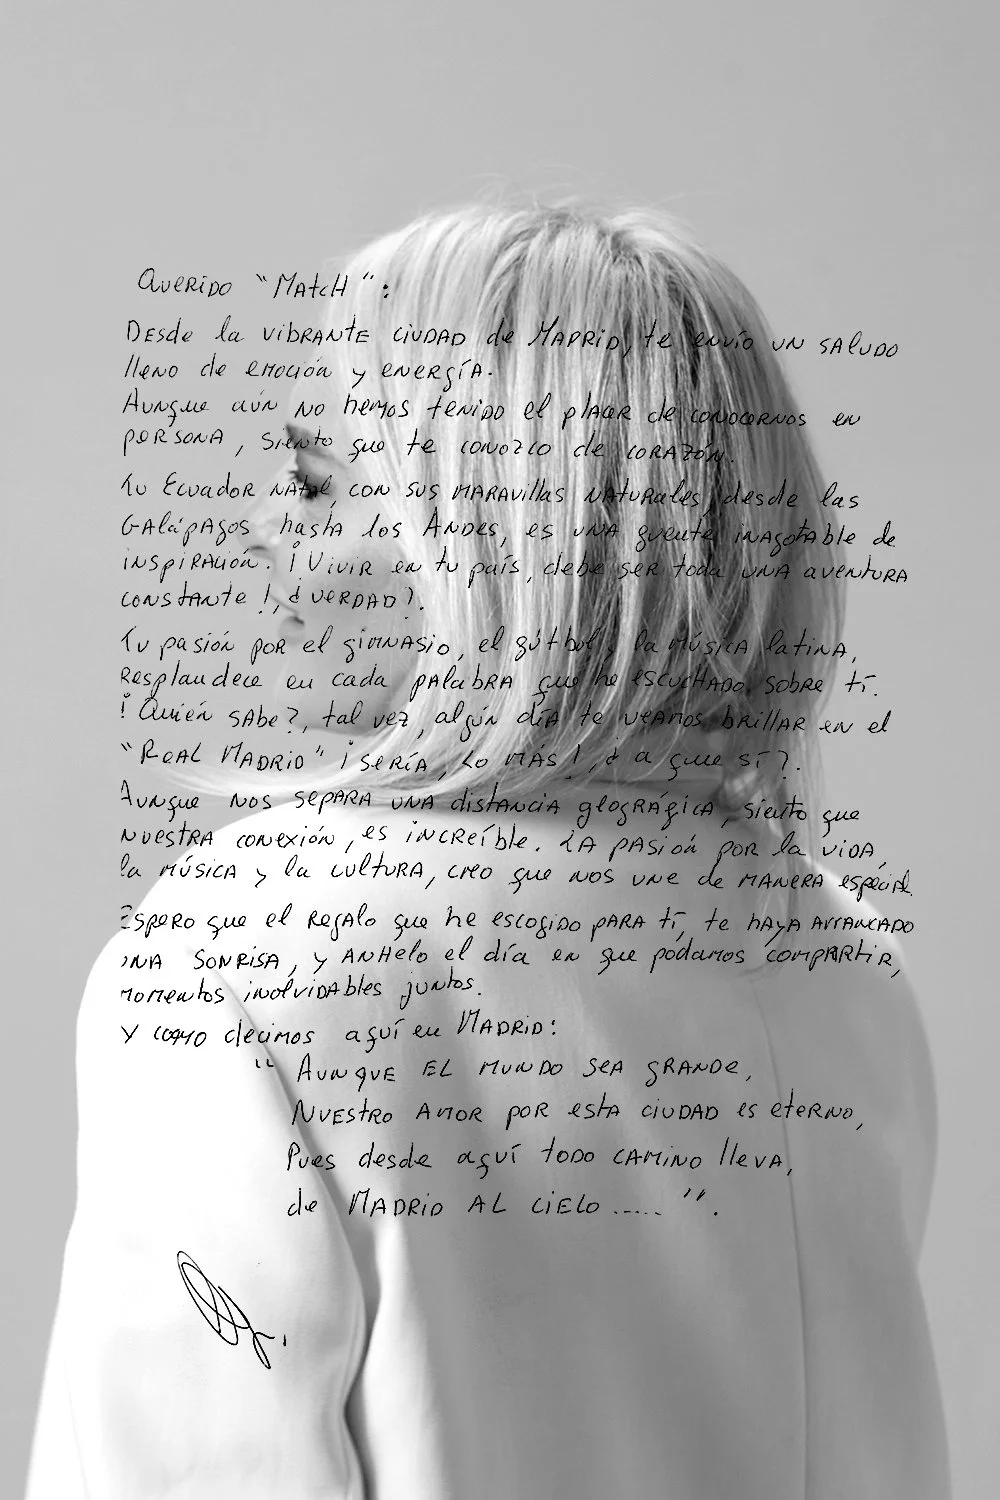 Querido "Match":
Desde la vibrante ciudad de Madrid, te envío un saludo
lleno de emoción y energía.
Aunque aún no hemos tenido el placer de conocernos en
persona, siento que te conozco de corazón.
Tu Ecuador natal, con sus maravillas naturales, desde las
Galápagos hasta los Andes, es una fuente inagotable de
inspiración. ¡Vivir en tu país, debe ser toda una aventura
constante!, ¿verdad?.
Tu pasión por el gimnasio, el fútbol y la música latina,
resplandece en cada palabra que he escuchado sobre tí.
¡Quién sabe?, tal vez, algún día te veamos brillar en el
"Real Madrid" ¡sería, lo más!, ¿a que sí?.
Aunque nos separa una distancia geográfica, siento que
nuestra conexión, es increíble. La pasión por la vida,
la música y la cultura, creo que nos une de manera especial.
Espero que el regalo que he escogido para tí, te haya arrancado
una sonrisa, y anhelo el día en que podamos compartir,
momentos inolvidables juntos.
Y como decimos aquí en Madrid:
"Aunque el mundo sea grande,
Nuestro amor por esta ciudad es eterno,
Pues desde aquí todo camino lleva,
de Madrid al cielo.....".